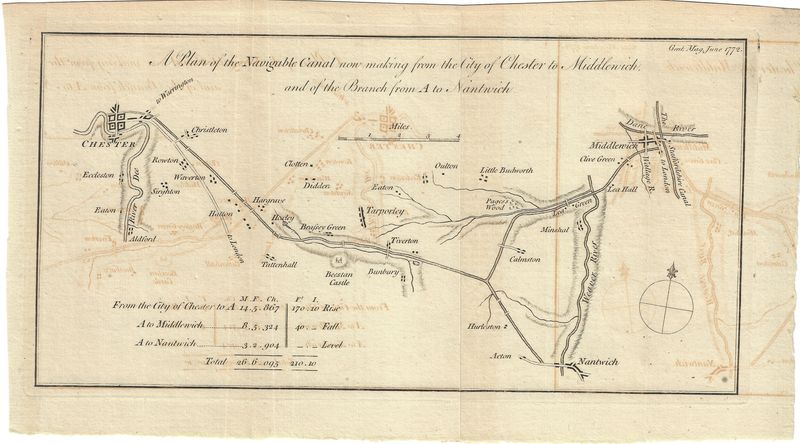 Gent. Mag. June 1772.
A Plan of the Navigable Canal now making from the City of Chester to Middlewich,
and of the Branch from A to Nantwich
to Warrington
CHESTER
Christleton
Miles
1 2 3 4
Dane
The River
Middlewich
Staffordshire Canal
to London
Wallags R.
Clive Green
Lea Hall
Rowton
Waverton
Eccleston
River Dee
Sirghton
Eaton
Aldford
Hatton
to London
Hargrave
Huxley
Clotton
Didden
Oulton
Eaton
Little Budworth
Pages's Wood
Tarporley
Brassey Green
Tiverton
Lea Green
Minshal
Weaver River
Calmston
Tattenhall
Beestan
Castle
Bunbury
A
Hurleston
Acton
Nantwich
M. F. Ch. Ft I.
From the City of Chester to A 14.5.867 170.10 Rise
A to Middlewich 8.5.324 40.- Fall
A to Nantwich 3.2.904 -.- Level
Total 26.6.095 210.10